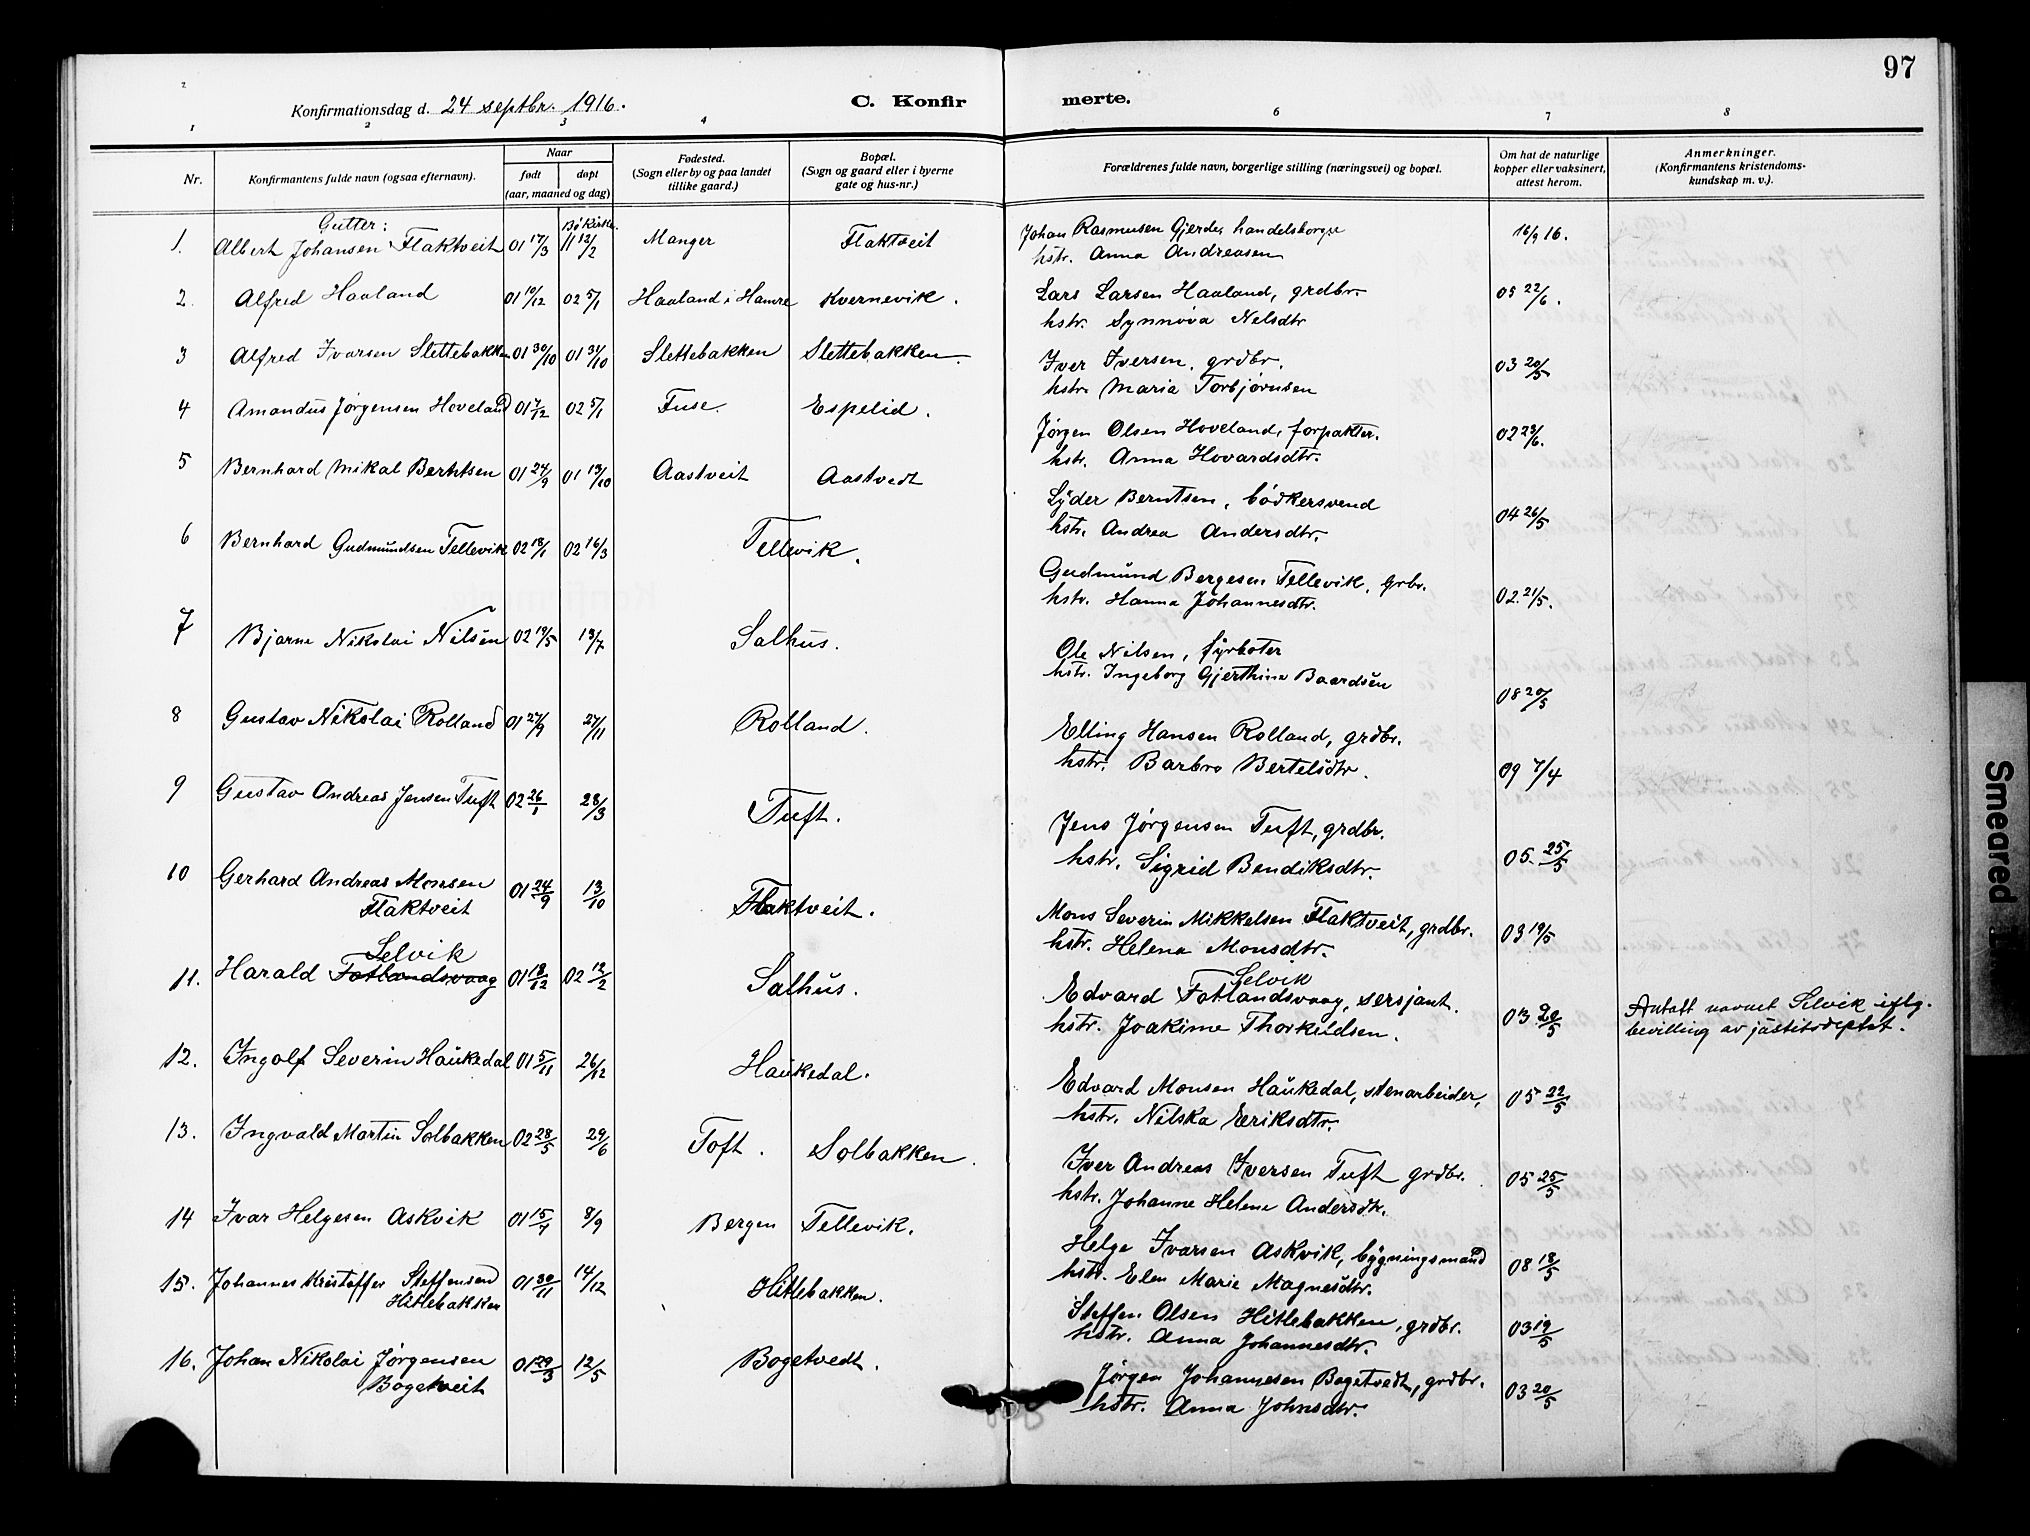 97
Konfirmationsdag d. 24 septbr. 1916.
C. Konfir merte.
1 2 3 4 6 7 8
Nr.
Konfirmantens fulde navn (ogsaa efternavn).
Naar
født døpt
(aar, maaned og dag)
Fødested.
(Sogn eller by og paa landet
tillike gaard.)
Bopæl.
(Sogn og gaard eller i byerne
gate og hus-nr.)
Forældrenes fulde navn, borgerlige stilling (næringsvei) og bopæl.
Om hat de naturlige
kopper eller vaksinert,
attest herom.
Anmerkninger.
(Konfirmantens kristendoms-
kundskap m. v.).
Gutter:
Bø Kirke
1. Albert Johansen Flaktveit 01 17/3 11 12/2 Manger Flaktveit Johan Rasmusen Gjerde, handelsborger 16/9 16.
hstr. Anna Andreasen
2. Alfred Haaland 01 10/12 02 5/1 Haaland i Hamre Kvernevik. Lars Larsen Haaland, grdbr. 05 22/6.
hstr. Synnøva Nelsdtr
3 Alfred Ivarsen Slettebakken 01 30/10 01 31/10 Slettebakken Slettebakken Iver Iversen, grdbr. 03 20/5
hstr. Maria Torbjørnsen
4 Amandus Jørgensen Hoveland 01 7/12 02 5/1 Fuse. Espelid. Jørgen Olsen Hoveland, forpakter. 02 23/6.
hstr. Anna Hovardsdtr.
5 Bernhard Mikal Berntsen 01 24/9 01 13/10 Aastveit Aastvedt Lyder Berntsen, bödkersvend 04 26/5
hstr. Andrea Andersdtr.
6 Bernhard Gudmundsen Tellevik 02 18/1 02 16/3 Tellevik. Gudmund Bergesen Tellevik, grbr. 02. 21/5.
hstr. Hanna Johannesdtr.
7 Bjarne Nikolai Nilsen 02 19/5 13/7 Salhus. Ole Nilsen, fyrboter 08 20/5
hstr. Ingeborg Gjerthine Baardsen
8 Gustav Nikolai Rolland 01 27/9 27/11 Rolland. Elling Hansen Rolland, grdbr. 09 7/4
hstr. Barbro Bertelsdtr.
9 Gustav Andreas Jensen Tuft 02 26/1 28/3 Tuft. Jens Jørgensen Tuft, grdbr. 05. 25/5
hstr. Sigrid Bendiksdtr.
10 Gerhard Andreas Monsen 01 24/9 13/10 Flaktveit. Mons Severin Mikkelsen Flaktveit, grdbr. 03 19/5
Flaktveit hstr. Helena Monsdtr.
Selvik Selvik
11. Harald Fotlandsvaag 01 18/12 02 12/2 Salhus. Edvard Fotlandsvaag, sersjant. 03 20/5 Antatt navnet Selvik iflg.
hstr. Joakime Thorkildsen. bevilling av justitsdeptet.
12. Ingolf Severin Haukedal 01 5/11 26/12 Haukedal. Edvard Monsen Haukedal, stenarbeider, 05 22/5
hstr. Nilska Eriksdtr.
13. Ingvald Martin Solbakken 02 28/5 29/6 Toft. Solbakken. Iver Andreas Iversen Tuft grdbr. 05 25/5
hstr. Johanne Helene Andersdtr.
14 Ivar Helgesen Askvik 01 15/7 8/9 Bergen Tellevik. Helge Ivarsen Askvik, bygningsmand 08 18/5
hstr. Elen Marie Magnesdtr.
15. Johannes Kristoffer Steffensen 01 30/11 14/12 Hitlebakken. Steffen Olsen Hitlebakken, grdbr. 03 19/5
Hitlebakken hstr. Anna Johannesdtr.
16. Johan Nikolai Jørgensen 01 29/3 12/5 Bogetvedt. Jørgen Johannesen Bogetvedt, grdbr. 03 20/5
Bogetveit hstr. Anna Johnsdtr.
Smeared